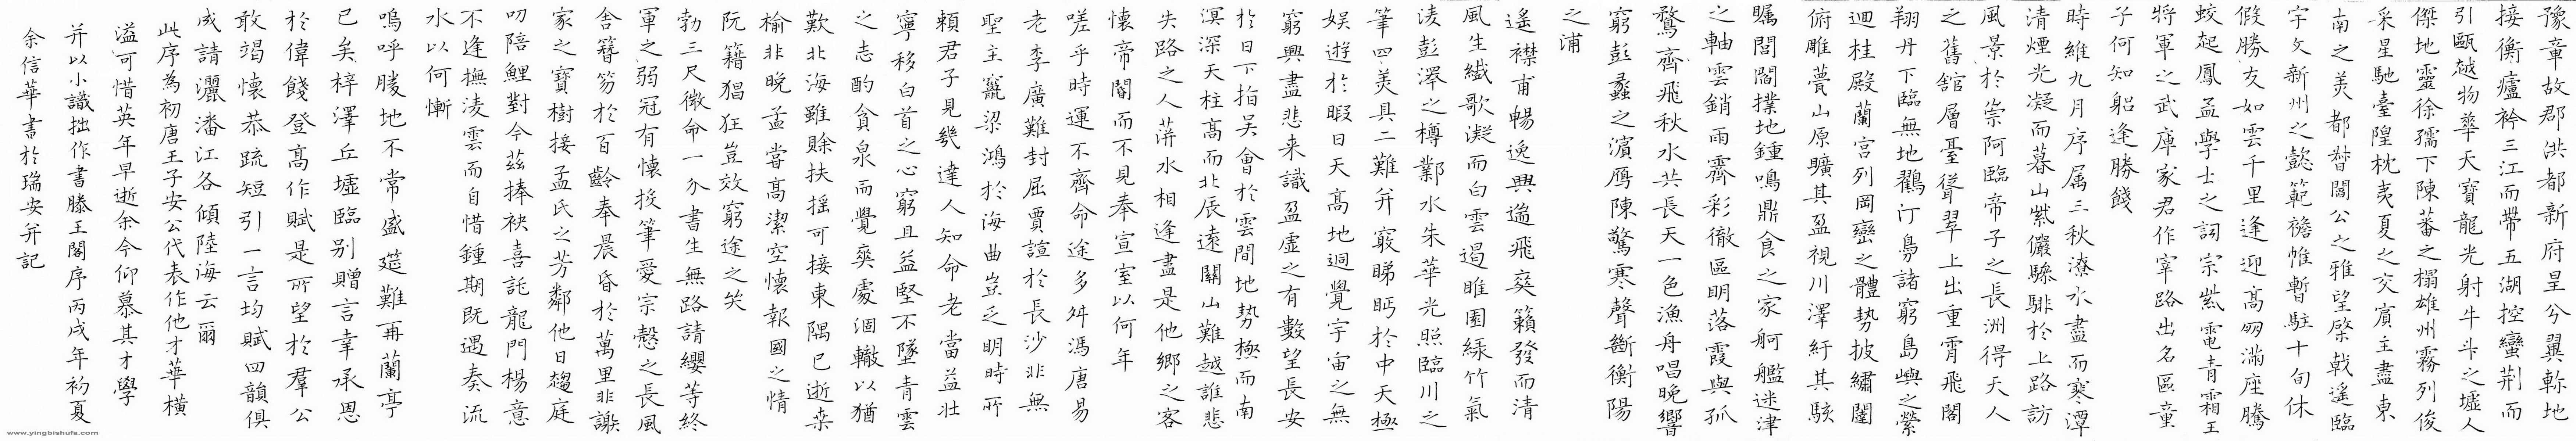 豫章故郡洪都新府星分翼軫地
接衡廬襟三江而帶五湖控蠻荆而
引甌越物華天寶龍光射牛斗之墟人
傑地靈徐孺下陳蕃之榻雄州霧列俊
采星馳臺隍枕夷夏之交賓主盡東
南之美都督閻公之雅望棨戟遙臨
宇文新州之懿範襜帷暫駐十旬休
假勝友如雲千里逢迎高朋滿座騰
蛟起鳳孟學士之詞宗紫電青霜王
將軍之武庫家君作宰路出名區童
子何知躬逢勝餞
時維九月序属三秋潦水盡而寒潭
清煙光凝而暮山紫儼驂騑於上路訪
風景於崇阿臨帝子之長洲得天人
之舊館層臺聳翠上出重霄飛閣
翔丹下臨無地鶴汀鳧諸窮島嶼之縈
迴桂殿蘭宮列岡巒之體勢披繡闥
俯雕甍山原曠其盈視川澤紆其駭
矚閭閻撲地鍾鳴鼎食之家舸艦迷津
之軸雲銷雨霽彩徹區明落霞與孤
鶩齊飛秋水共長天一色漁舟唱晚響
窮彭蠡之濱雁陳驚寒聲斷衡陽
之浦
遙襟甫暢逸興遄飛爽籟發而清
風生纖歌凝而白雲遏睢園綠竹氣
淩彭澤之樽鄴水朱華光照臨川之
筆四美具二難并窮睇眄於中天極
娱遊於暇日天高地迥覺宇宙之無
窮興盡悲来識盈虛之有數望長安
於日下指吴會於雲間地勢極而南
溟深天柱高而北辰遠關山難越誰悲
失路之人萍水相逢盡是他鄉之客
懷帝閽而不見奉宣室以何年
嗟乎時運不齊命途多舛馮唐易
老李廣難封屈賈誼於長沙非無
聖主竄梁鴻於海曲豈乏明時所
賴君子見幾達人知命老當益壯
寧移白首之心窮且益堅不墜青雲
之志酌貪泉而覺爽處涸轍以猶
歎北海雖賒扶搖可接東隅已逝桒
榆非晚孟嘗高潔空懷報國之情
阮籍猖狂豈效窮途之哭
勃三尺微命一介書生無路請纓等終
軍之弱冠有懷投筆愛宗慤之長風
舍簪笏於百齡奉晨昏於萬里非謝
家之寶樹接孟氏之芳鄰他日趨庭
叨陪鯉對今茲捧袂喜託龍門楊意
不逢撫淩雲而自惜鍾期既遇奏流
水以何慚
嗚呼勝地不常盛筵難再蘭亭
已矣梓澤丘墟臨别贈言幸承恩
於偉餞登高作賦是所望於羣公
敢竭懷恭疏短引一言均賦四韻俱
成請灑潘江各傾陸海云爾
此序為初唐王子安公代表作他才華橫
溢可惜英年早逝余今仰慕其才學
并以小識拙作書滕王閣序丙戌年初夏
余信華書於瑞安并記
www.yingbishufa.com